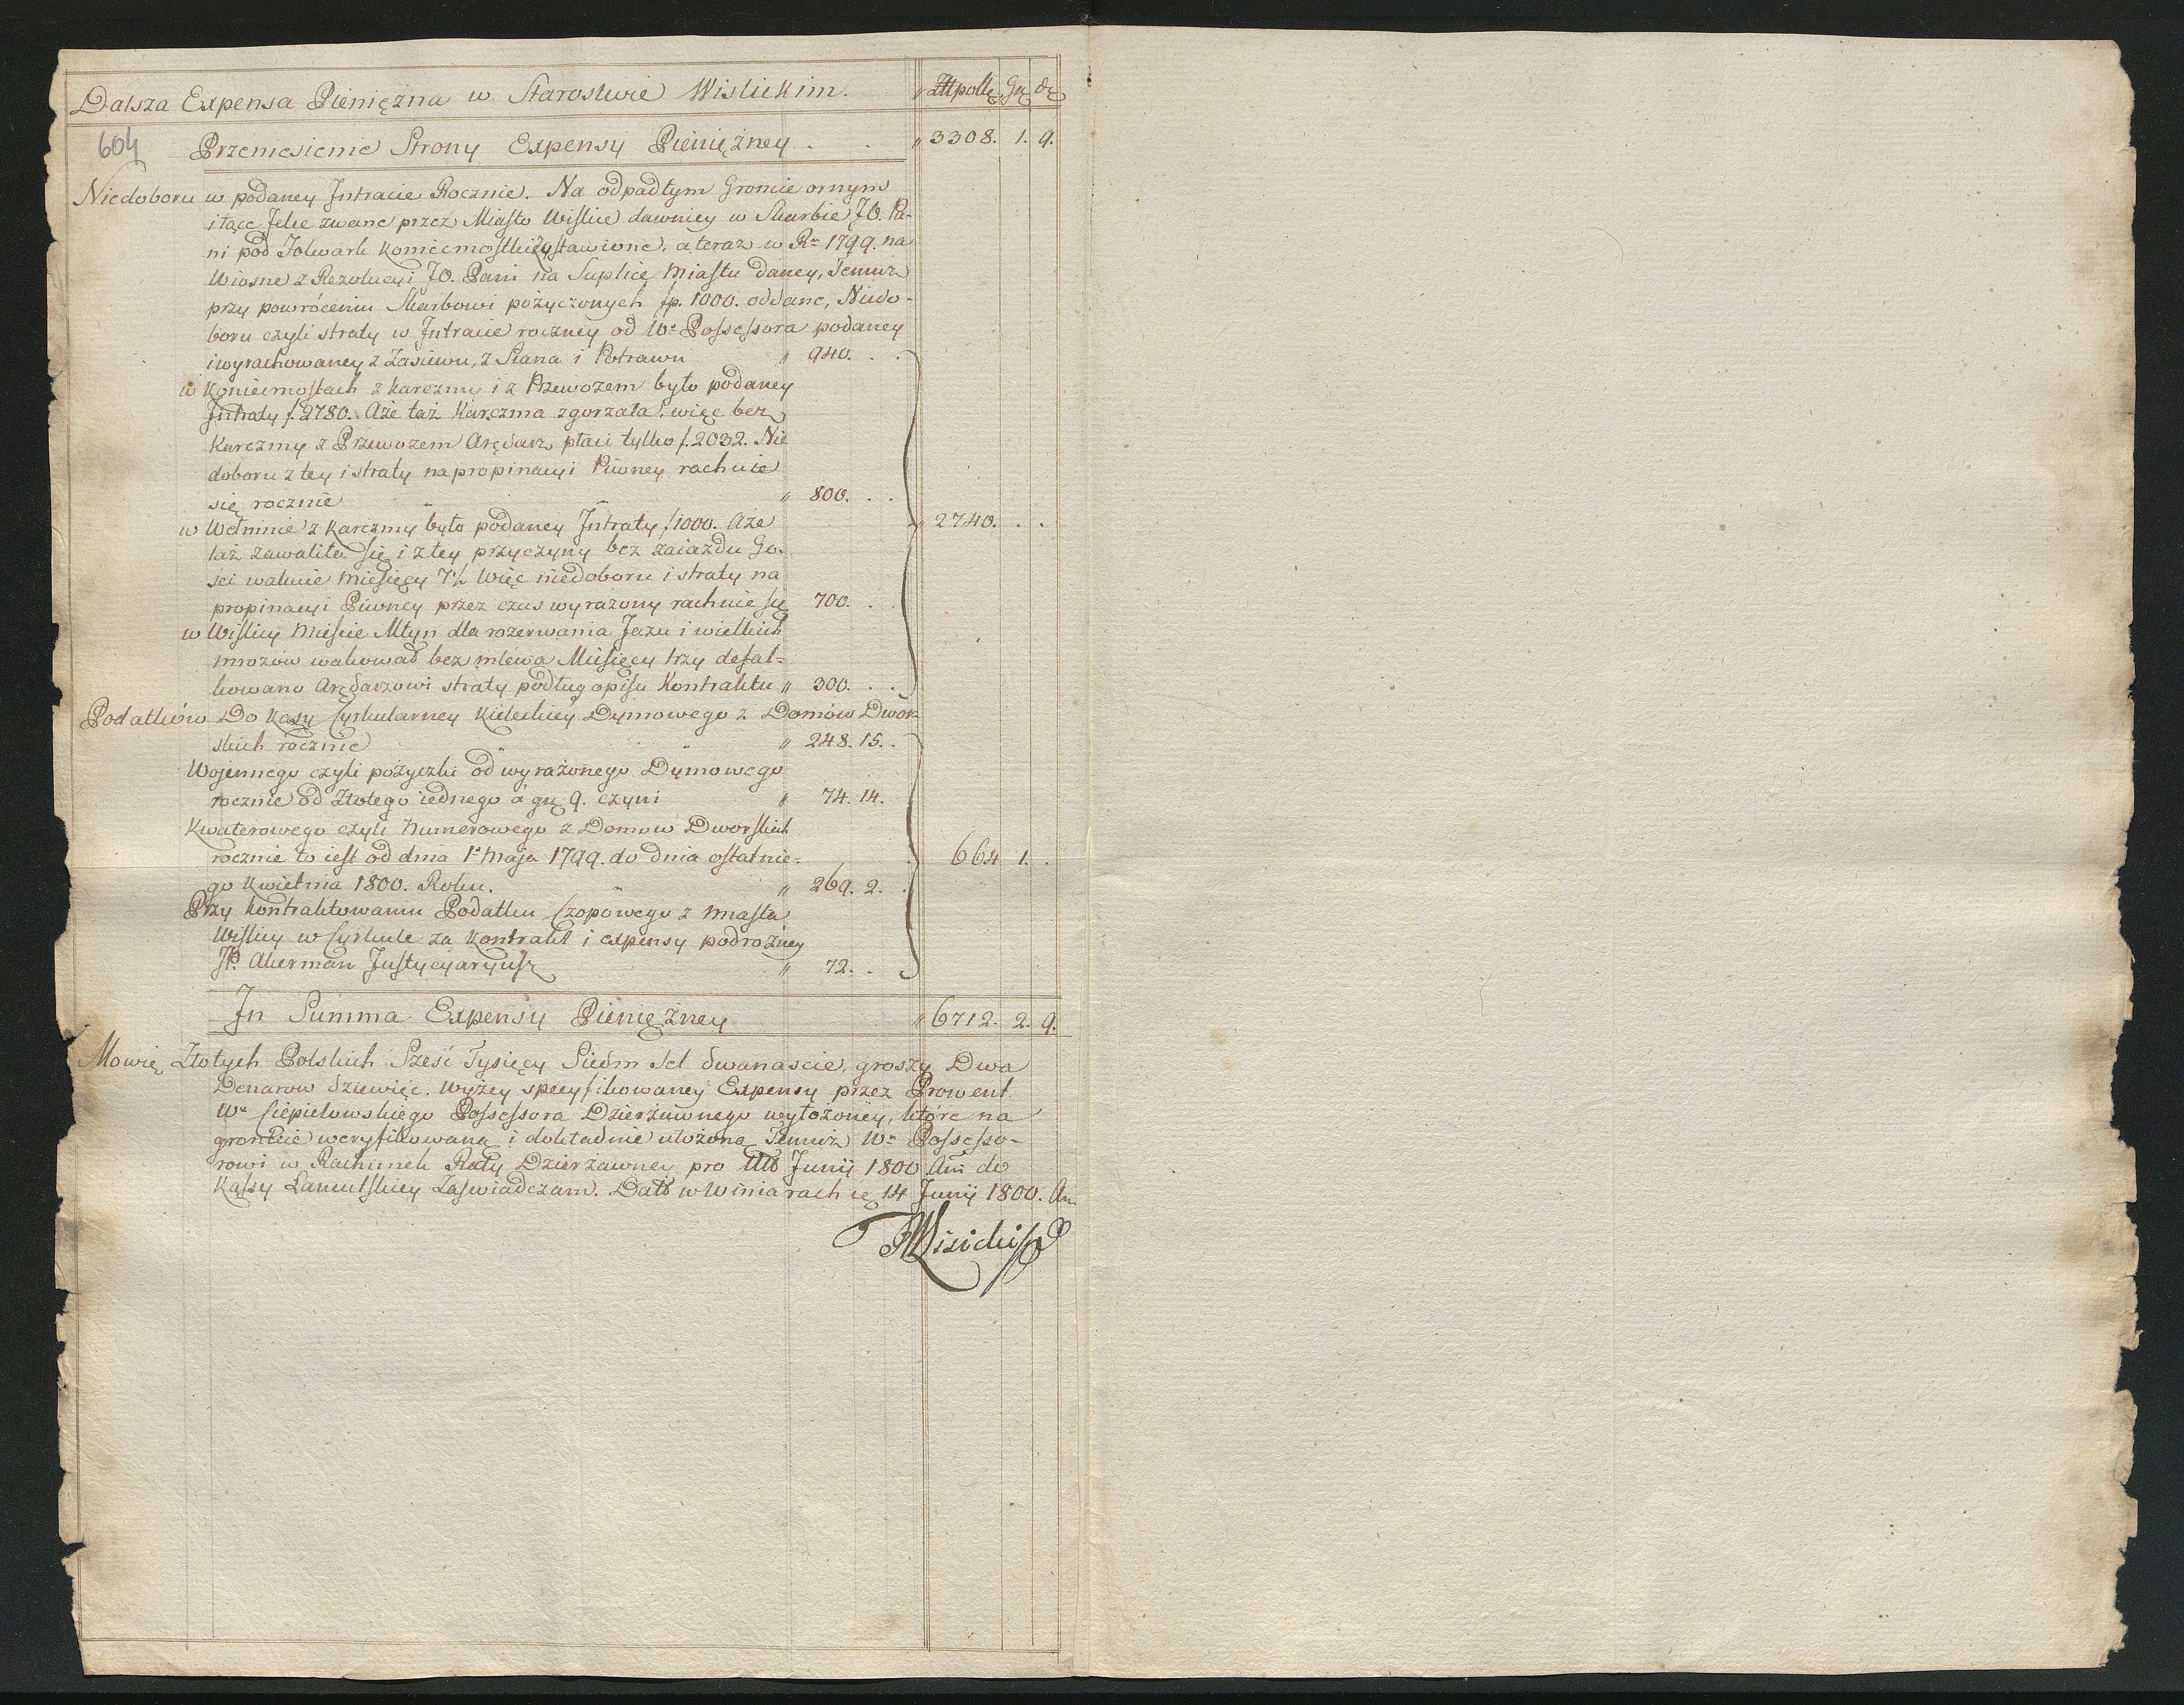 Dalsza Expensa Pieniężna w Starostwie Wislickim. " Złł polh Gr dr
604 Przeniesienie Strony Expensy Pieniężney . . " 3308. 1. 9.
Niedoboru w podaney Jntracie Rocznie. Na odpadłym Groncie ornym
i łące Jelce zwane przez Miasto Wislice dawniey w Skarbie JO. Pa-
ni pod Folwark Koniecmostki zostawione, a teraz w Rº 1799. na
Wiosne z Rezolucyi JO. Pani na Suplice Miastu daney, Temuż
przy powróceniu Skarbowi pożyczonych fp. 1000. oddane, Niedo-
boru czyli straty w Jntracie roczney od Wº Possessora podaney
i wyrachowaney z Zasiewu, z Siana i Potrawu " 940. . .
w Koniecmostach z karczmy i z Przewozem było podaney
Jntraty f. 2780. Aże taż Karczma zgorzała, więc bez
Karczmy z Przewozem Arędarz płaci tylko f. 2032. Nie
doboru z tey i straty na propinacyi Piwney rachuie
się rocznie " 800. . .
w Wełninie z Karczmy było podaney Jntraty f. 1000. Aże " 2740. . .
taż zawaliła się i z tey przyczyny bez zaiazdu Go-
sci wakuie Miesięcy 7½ Więc niedoboru i straty na
propinacyi Piwney przez czas wyrażony rachuie się 700. . .
w Wislicy Mieście Młyn dla rozerwania Jazu i wielkich
mrozów wakował bez mlewa Miesięcy trzy defal-
kowano Arędarzowi straty podług opisu Kontraktu " 300. . .
Podatków Do Kasy Cyrkularney Kieleckiey Dymowego z Domów Dwor-
skich rocznie " 248. 15. .
Wojennego czyli pożyczki od wyrażonego Dymowego
rocznie od Złotego iednego á gr 9. czyni " 74. 14.
Kwaterowego czyli Numerowego z Domow Dworskich
rocznie to iest od dnia 1º Maja 1799. do dnia ostatnie- 664 1. .
go Kwietnia 1800. Roku. " 269. 2. .
Przy kontraktowaniu Podatku Czopowego z Miasta
Wislicy w Cyrkule za Kontrakt i expensy podrożney
JP. Akerman Justycyaryusz " 72. . .
Jn Summa Expensy Pieniężney " 6712. 2. 9.
Mowię Złotych Polskich Sześć Tysięcy Siedm Set dwanascie, groszy Dwa
Denarow dziewięć. Wyżey specyfikowaney Expensy przez Prowent
Wº Ciepielowskiego Possessora Dzierżawnego wyłożoney, które na
groncie weryfikowaną i dokładnie ułożoną Temuż Wº Possesso-
rowi w Rachunek Raty Dzierżawney pro Junij 1800 Ani do
Kassy Łancutskiey Zaswiadczam. Datt w Winiarach 14 Junij 1800. An